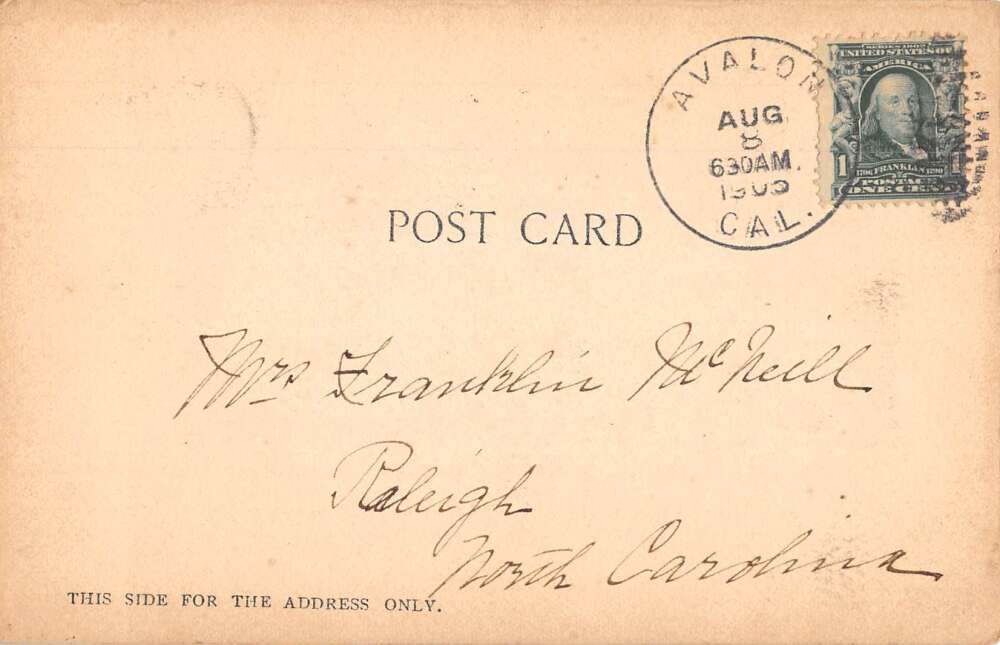 AVALON
AUG
8
630AM.
1905
CAL.
SERIES 1902
UNITED STATES OF
AMERICA
1
1706 FRANKLIN 1790
POSTAGE
ONE CENT
POST CARD
Mrs Franklin McNeill
Raleigh
North Carolina
THIS SIDE FOR THE ADDRESS ONLY.